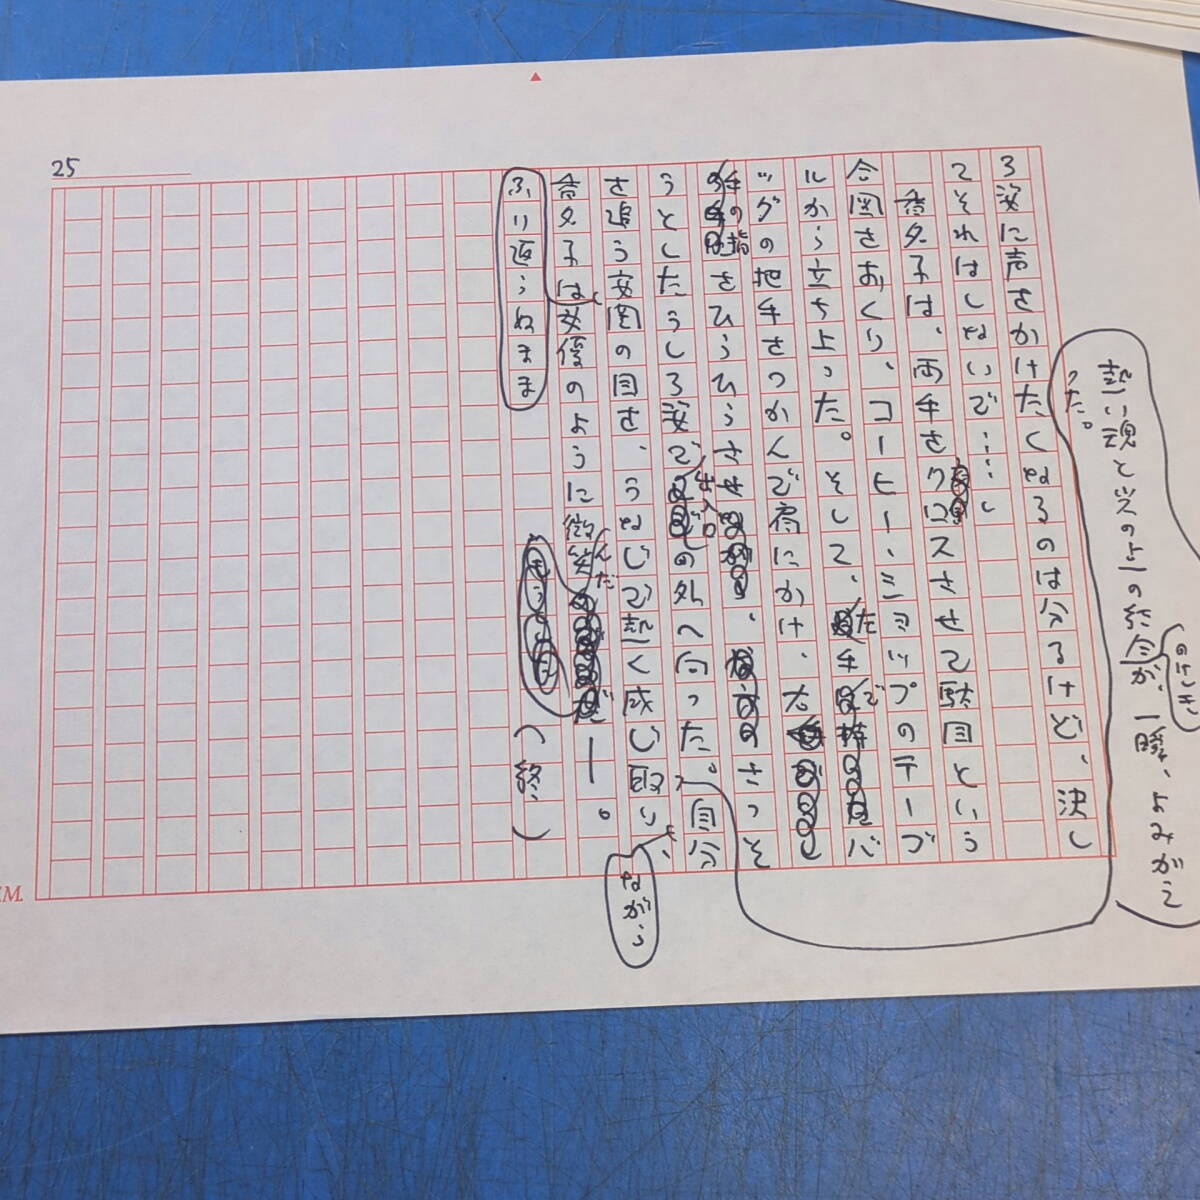 25
ろ姿に声をかけたくなるのは分るけど、決し
てそれはしないで……」
香夕子は、両手をクロスさせて駄目という
合図をおくり、コーヒー・ショップのテーブ
ルから立ち上った。そして、左手でバ
ッグの把手をつかんで肩にかけ、右
手の指をひらひらさせ、さっそ
うとしたうしろ姿で出入口の外へ向った。自分
を追う安岡の目を、うなじで熱く感じ取り、
ながら
香夕子は女優のように微笑んだ―。
ふり返らぬまま
(終)
熱い魂と災の点の終
のけしき
が、一瞬、よみがえ
った。